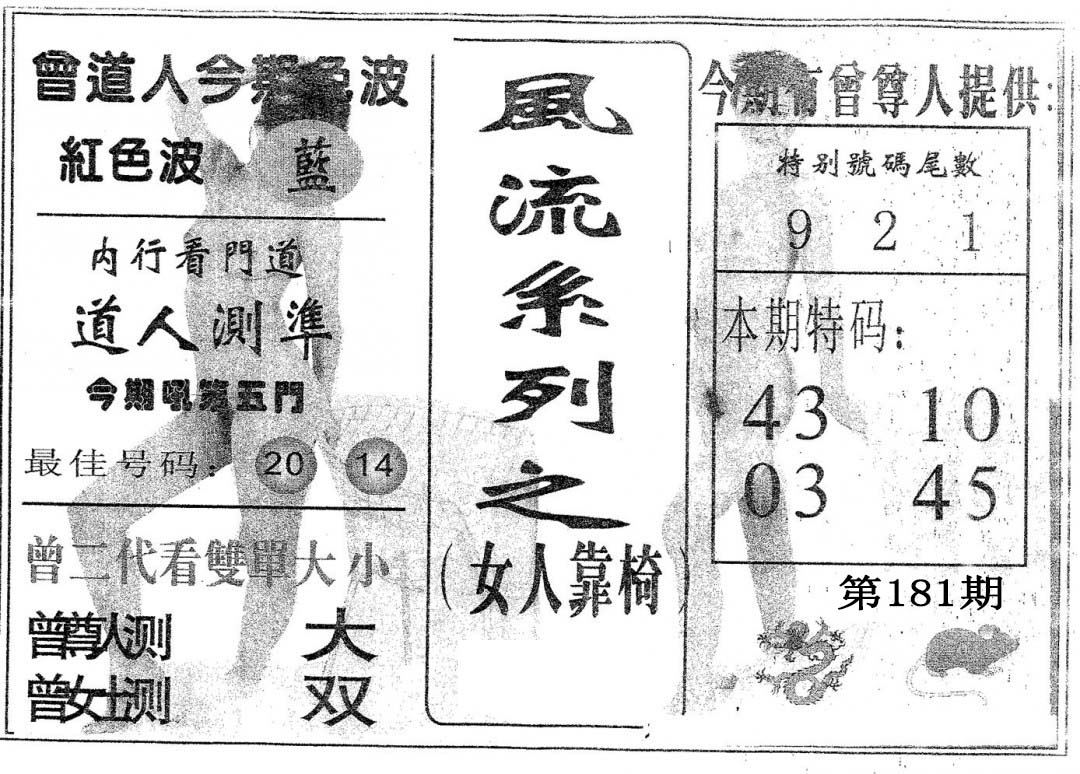 曾道人今期色波
紅色波 藍
内行看門道
道人測準
今期吼第五門
最佳号码：20 14
曾二代看雙單大小
曾尊人测 大
曾女士测 双
風流系列之
（女人靠椅）
今期有曾尊人提供：
特别號碼尾數
9 2 1
本期特码：
43 10
03 45
第181期